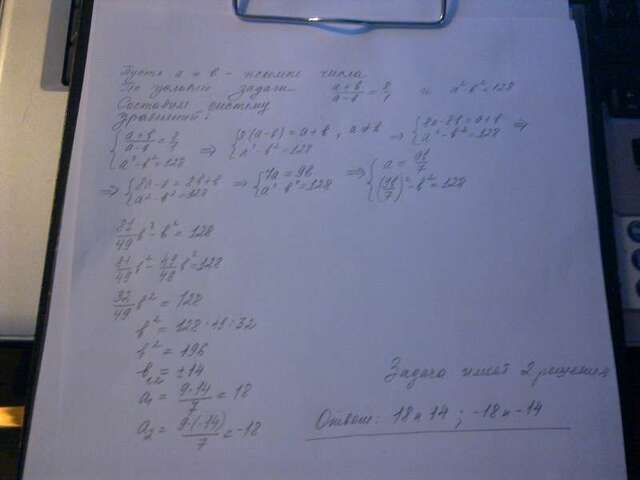 Пусть a и b - искомые числа
По условию задачи (a+b)/(a-b) = 8/1 и a²-b²=128
Составим систему
уравнений:
{ (a+b)/(a-b) = 8/1 ; a²-b²=128 ⇒ { 8(a-b)=a+b, a≠b ; a²-b²=128 ⇒ { 8a-8b=a+b ; a²-b²=128 ⇒
⇒ { a²-b²=128 ⇒ { 7a=9b ; a²-b²=128 ⇒ { a=9b/7 ; (9b/7)²-b²=128
81/49 b²-b²=128
81/49 b²-49/49 b²=128
32/49 b²=128
b²=128·49:32
b²=196
b₁,₂=±14
a₁=9·14/7=18
a₂=9·(-14)/7=-18
Задача имеет 2 решения
Ответ: 18 и 14 ; -18 и -14